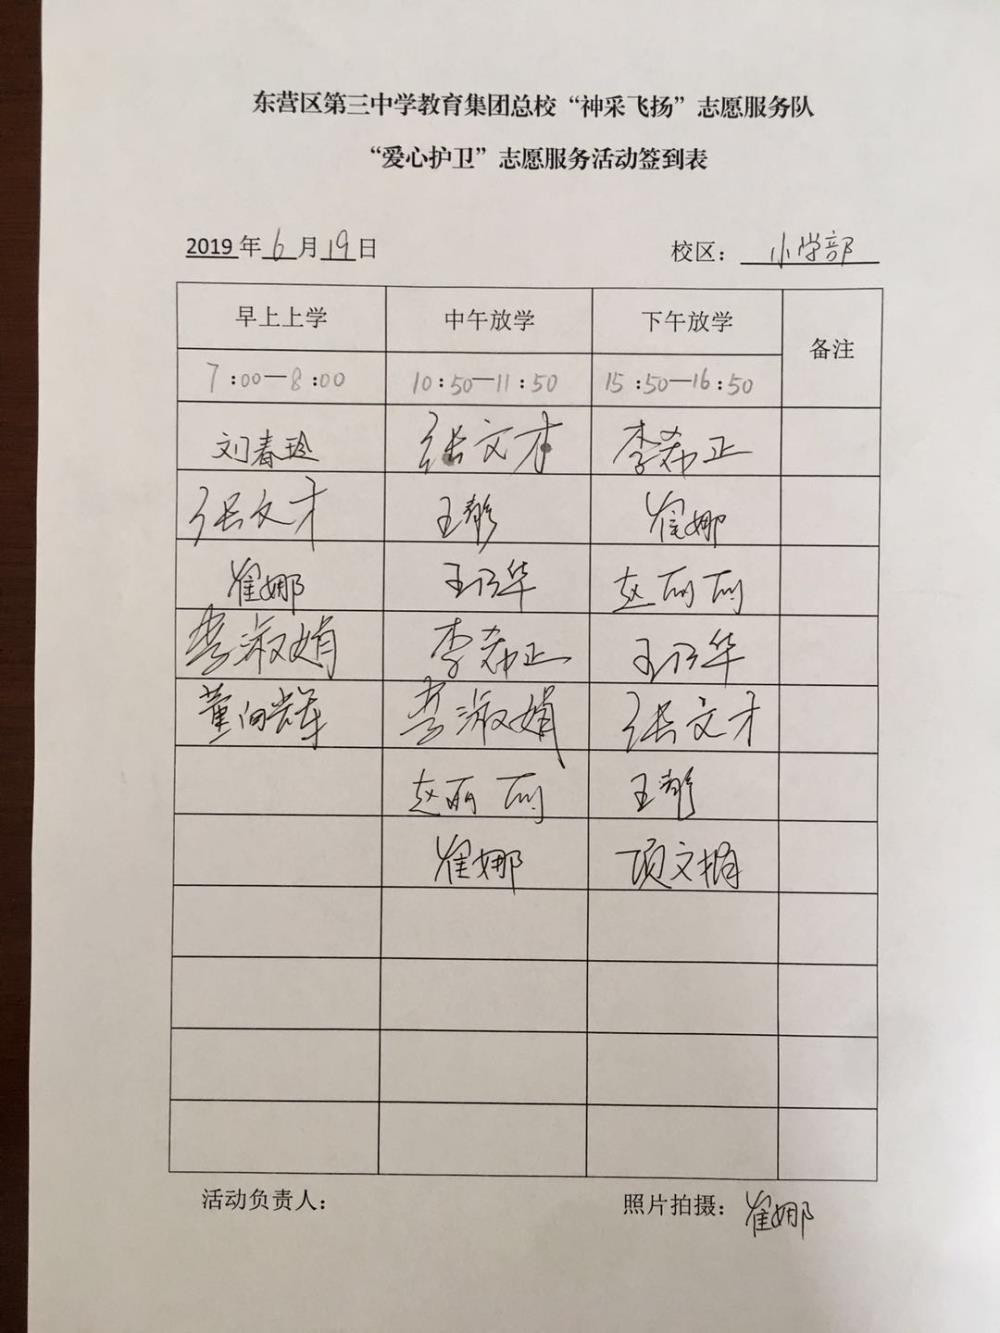 东营区第三中学教育集团总校“神采飞扬”志愿服务队
“爱心护卫”志愿服务活动签到表
2019年6月19日 校区：小学部
早上上学 中午放学 下午放学 备注
7:00—8:00 10:50—11:50 15:50—16:50
刘春玲 张文才 李希正
张文才 王彭 崔娜
崔娜 王乃华 赵丽丽
李淑娟 李希正 王乃华
董向辉 李淑娟 张文才
赵丽丽 王彭
崔娜 项文娟
活动负责人： 照片拍摄：崔娜